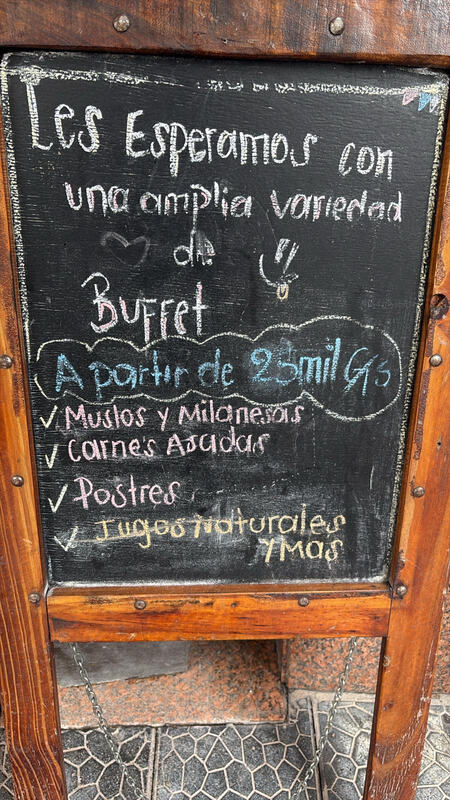 Les Esperamos con
una amplia variedad
de
Buffet
A partir de 23mil Gs
✓ Muslos y Milanesas
✓ Carnes Asadas
✓ Postres
✓ Jugos Naturales
Y Mas